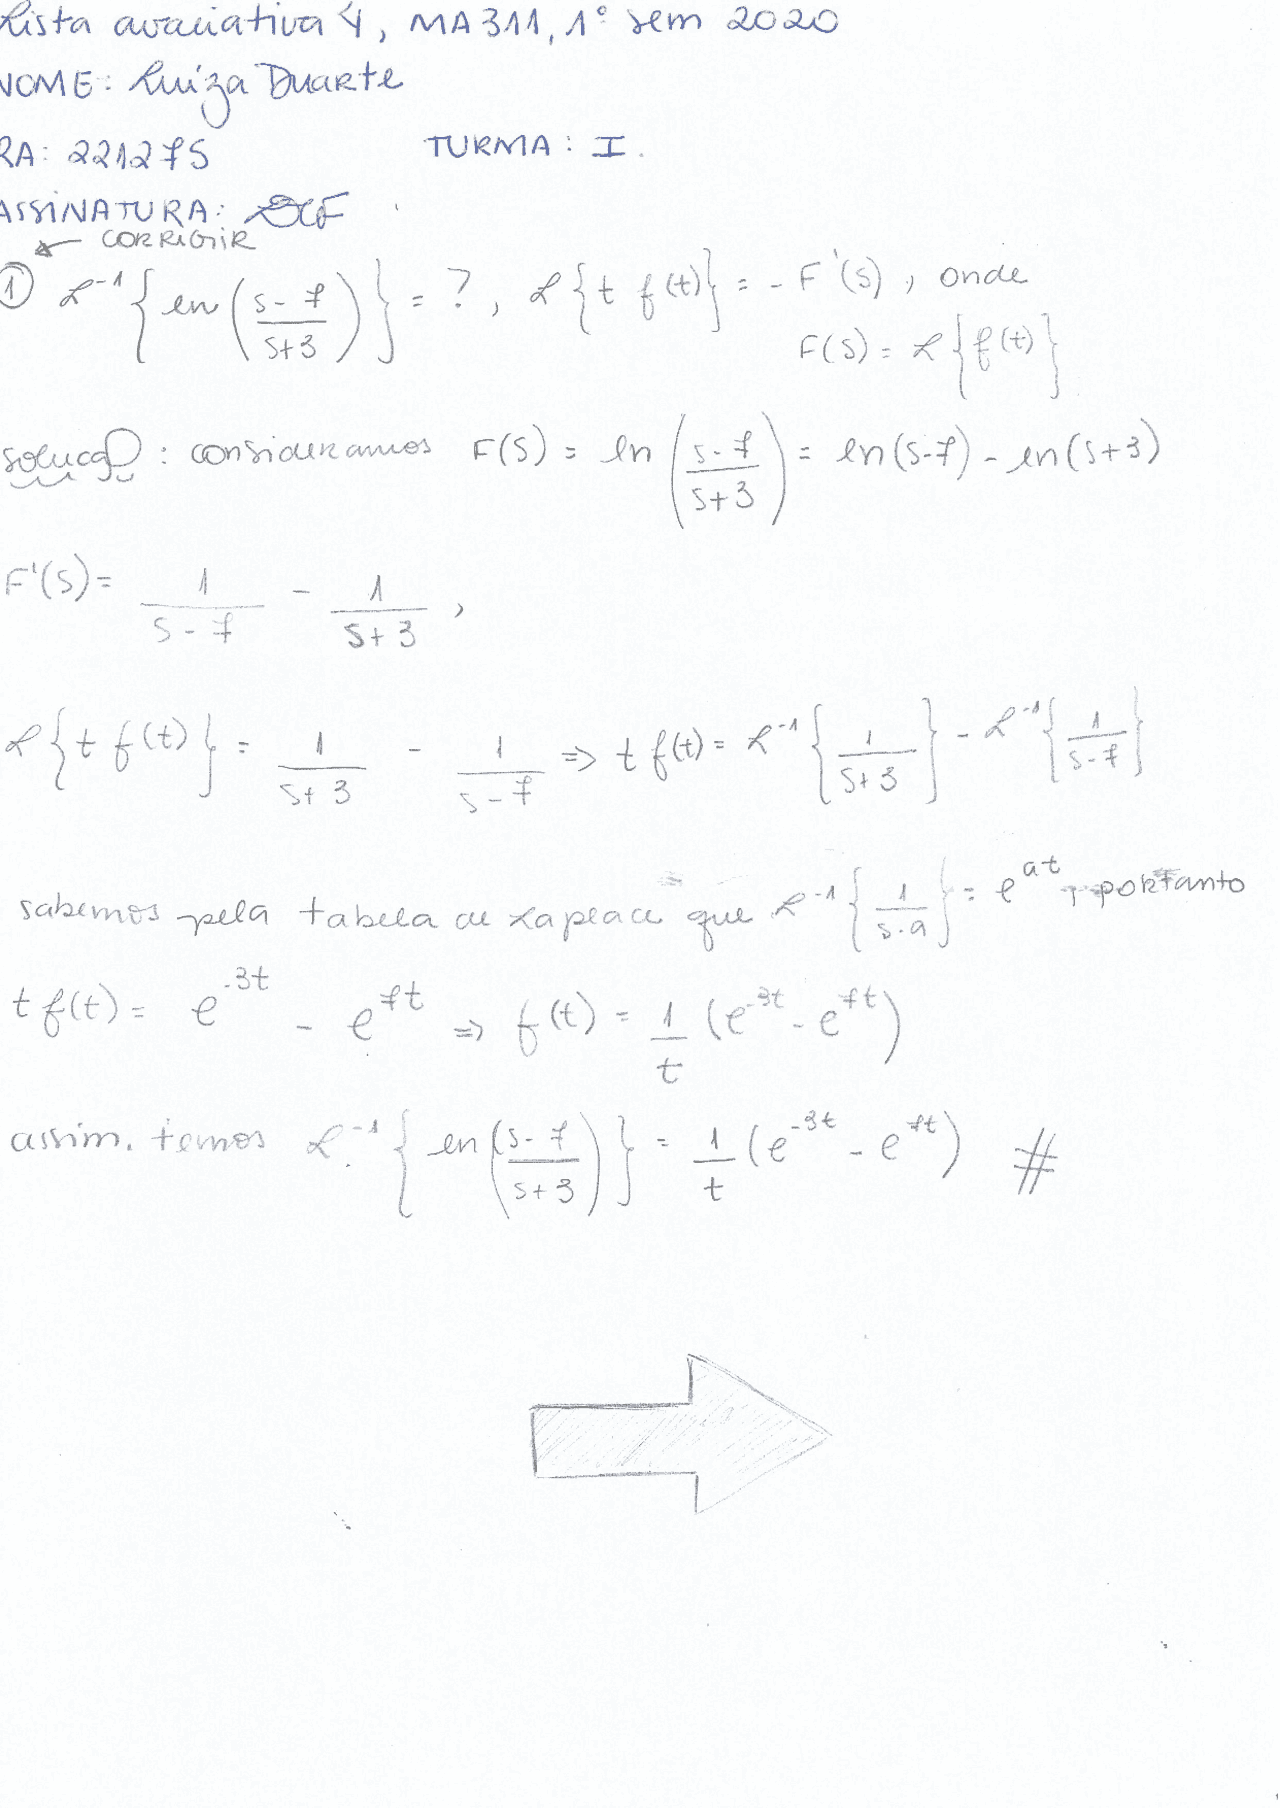 Lista avaliativa 4, MA311, 1º sem 2020
NOME: Luiza Duarte
RA: 221275 TURMA: I.
ASSINATURA:
← CORRIGIR
① ℒ⁻¹{ln((s-7)/(s+3))} = ?, ℒ{t f(t)} = -F'(s), onde
F(s) = ℒ{f(t)}
solução: consideramos F(s) = ln((s-7)/(s+3)) = ln(s-7) - ln(s+3)
F'(s) = 1/(s-7) - 1/(s+3),
ℒ{t f(t)} = 1/(s+3) - 1/(s-7) ⇒ t f(t) = ℒ⁻¹{1/(s+3)} - ℒ⁻¹{1/(s-7)}
sabemos pela tabela de Laplace que ℒ⁻¹{1/(s-a)} = e^{at}, portanto
t f(t) = e^{-3t} - e^{7t} ⇒ f(t) = 1/t (e^{-3t} - e^{7t})
assim, temos ℒ⁻¹{ln((s-7)/(s+3))} = 1/t (e^{-3t} - e^{7t}) #